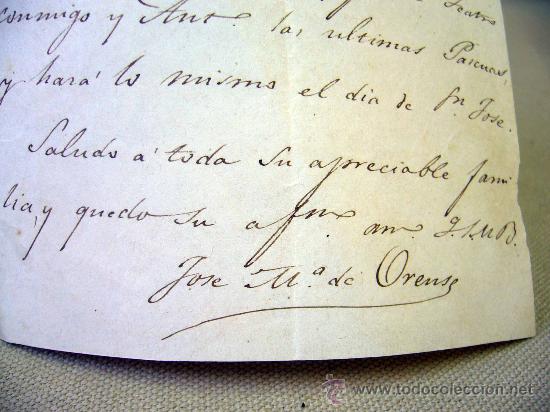 Teatro
conmigo y Ant.º las ultimas Pascuas,
y hará lo mismo el dia de Sn. Jose.
Saludo á toda su apreciable fami
lia, y quedo su afmo am.
Jose Mª de Orense
todocoleccion
www.todocoleccion.net